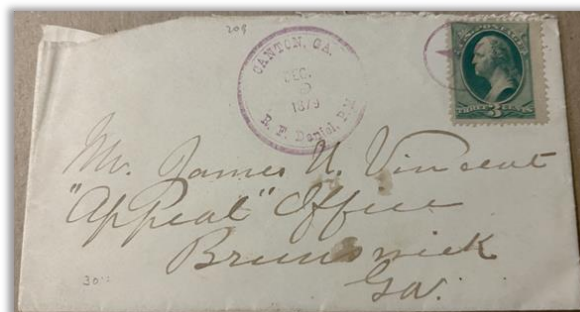 209
CANTON, GA.
DEC.
1879
R. F. Daniel, P.M.
U.S. POSTAGE
THREE 3 CENTS
Mr. James U. Vincent
"Appeal" Office
Brunswick
Ga.